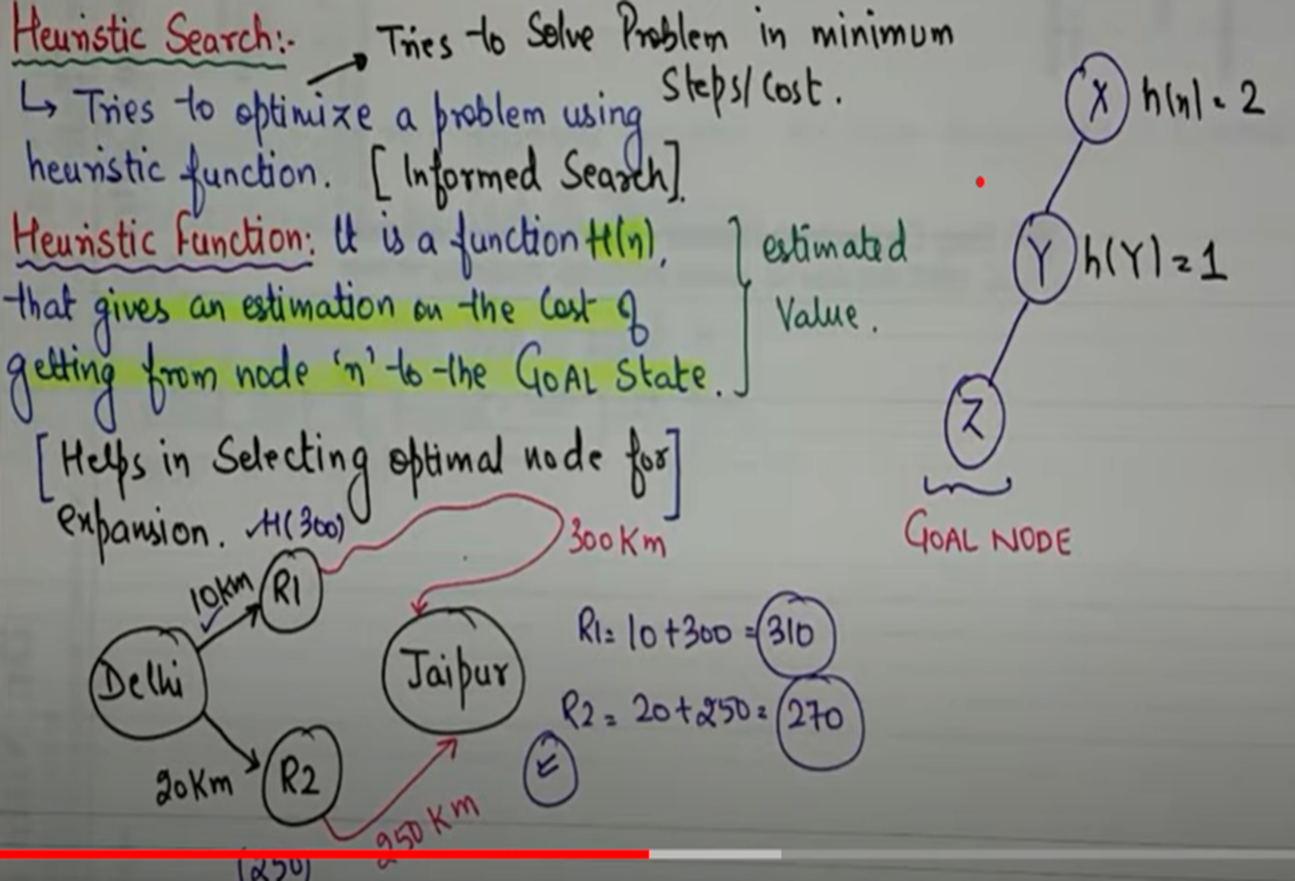 Heuristic Search:-
→ Tries to Solve Problem in minimum
Steps/Cost.
↳ Tries to optimize a problem using
heuristic function. [Informed Search].
Heuristic Function: It is a function H(n),
that gives an estimation on the Cost of
getting from node 'n' to the GOAL State.
estimated
Value.
[Helps in Selecting optimal node for]
expansion.
X h(n) = 2
Y h(Y) = 1
Z
GOAL NODE
H(300)
10Km
R1
300Km
Delhi
Jaipur
R1= 10+300 = 310
R2= 20+250= 270
20Km
R2
250Km
(250)